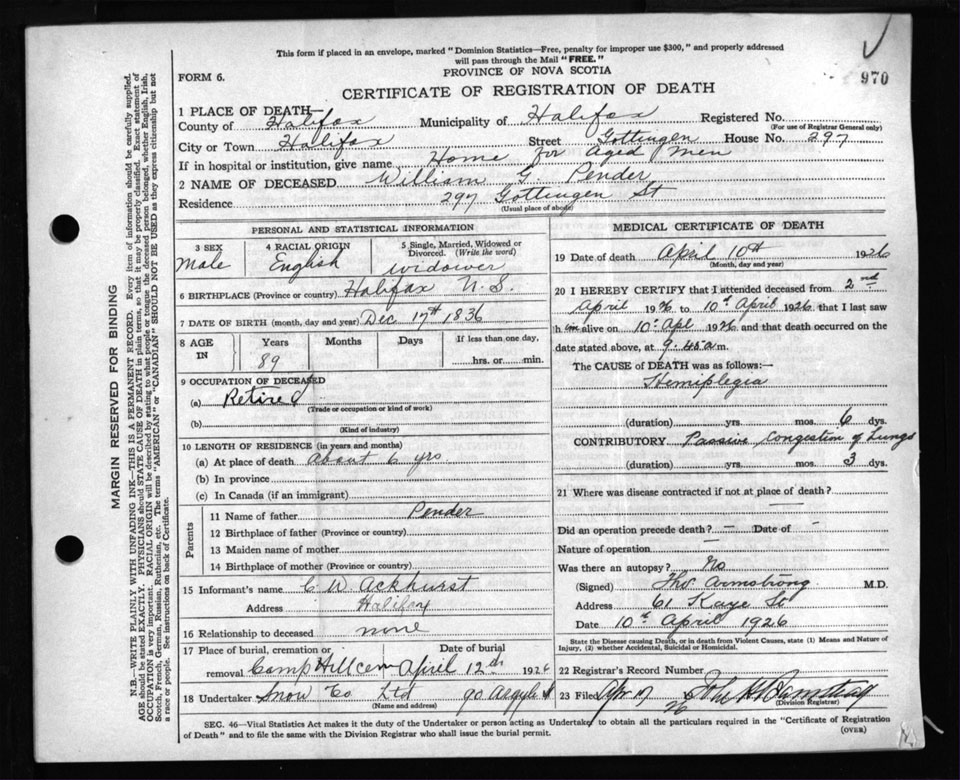 This form if placed in an envelope, marked "Dominion Statistics—Free, penalty for improper use $300," and properly addressed
will pass through the Mail "FREE."
970
FORM 6.
PROVINCE OF NOVA SCOTIA
CERTIFICATE OF REGISTRATION OF DEATH
1 PLACE OF DEATH—
County of Halifax Municipality of Halifax Registered No.
(For use of Registrar General only)
City or Town Halifax Street Gottingen House No. 297
If in hospital or institution, give name Home for Aged Men
2 NAME OF DECEASED William G. Pender
Residence 297 Gottingen St
(Usual place of abode)
PERSONAL AND STATISTICAL INFORMATION
3 SEX 4 RACIAL ORIGIN 5 Single, Married, Widowed or
Divorced. (Write the word)
Male English widower
6 BIRTHPLACE (Province or country) Halifax N.S.
7 DATE OF BIRTH (month, day and year) Dec 17th 1836
8 AGE IN Years Months Days If less than one day,
89 hrs. or min.
9 OCCUPATION OF DECEASED
(a) Retired
(Trade or occupation or kind of work)
(b)
(Kind of industry)
10 LENGTH OF RESIDENCE (in years and months)
(a) At place of death About 6 yrs
(b) In province
(c) In Canada (if an immigrant)
Parents
11 Name of father Pender
12 Birthplace of father (Province or country)
13 Maiden name of mother
14 Birthplace of mother (Province or country)
15 Informant's name C W Ackhurst
Address Halifax
16 Relationship to deceased none
17 Place of burial, cremation or Date of burial
removal Camp Hill Cem April 12th 1926
18 Undertaker Snow Co Ltd 90 Argyle St
(Name and address)
MEDICAL CERTIFICATE OF DEATH
19 Date of death April 10th 1926
(Month, day and year)
20 I HEREBY CERTIFY that I attended deceased from 2nd
April 1926 to 10th April 1926 that I last saw
him alive on 10th Apl 1926 and that death occurred on
date stated above, at 9.45 a m.
The CAUSE of DEATH was as follows:—
Hemiplegia
(duration) yrs. mos. 6 dys.
CONTRIBUTORY Passive Congestion of Lungs
(duration) yrs. mos. 3 dys.
21 Where was disease contracted if not at place of death?
Did an operation precede death? — Date of —
Nature of operation —
Was there an autopsy? No
(Signed) Thos Armstrong M.D.
Address 61 Kaye St
Date 10th April 1926
State the Disease causing Death, or in death from Violent Causes, state (1) Means and Nature of
Injury, (2) whether Accidental, Suicidal or Homicidal.
22 Registrar's Record Number
23 Filed Apr 17 26
(Division Registrar)
SEC. 46—Vital Statistics Act makes it the duty of the Undertaker or person acting as Undertaker to obtain all the particulars required in the "Certificate of Registration
of Death" and to file the same with the Division Registrar who shall issue the burial permit.
(OVER)
MARGIN RESERVED FOR BINDING
N.B.—WRITE PLAINLY WITH UNFADING INK—THIS IS A PERMANENT RECORD. Every item of information should be carefully supplied.
AGE should be stated EXACTLY. PHYSICIANS should STATE CAUSE OF DEATH in plain terms, so that it may be properly classified. Exact statement of
OCCUPATION is very important. RACIAL ORIGIN will be described by stating to what people or tongue the deceased person belonged, whether English, Irish,
Scotch, French, German, Russian, Ruthenian, etc. The terms "AMERICAN" or "CANADIAN" SHOULD NOT BE USED as they express citizenship but not
a race or people. See instructions on back of Certificate.